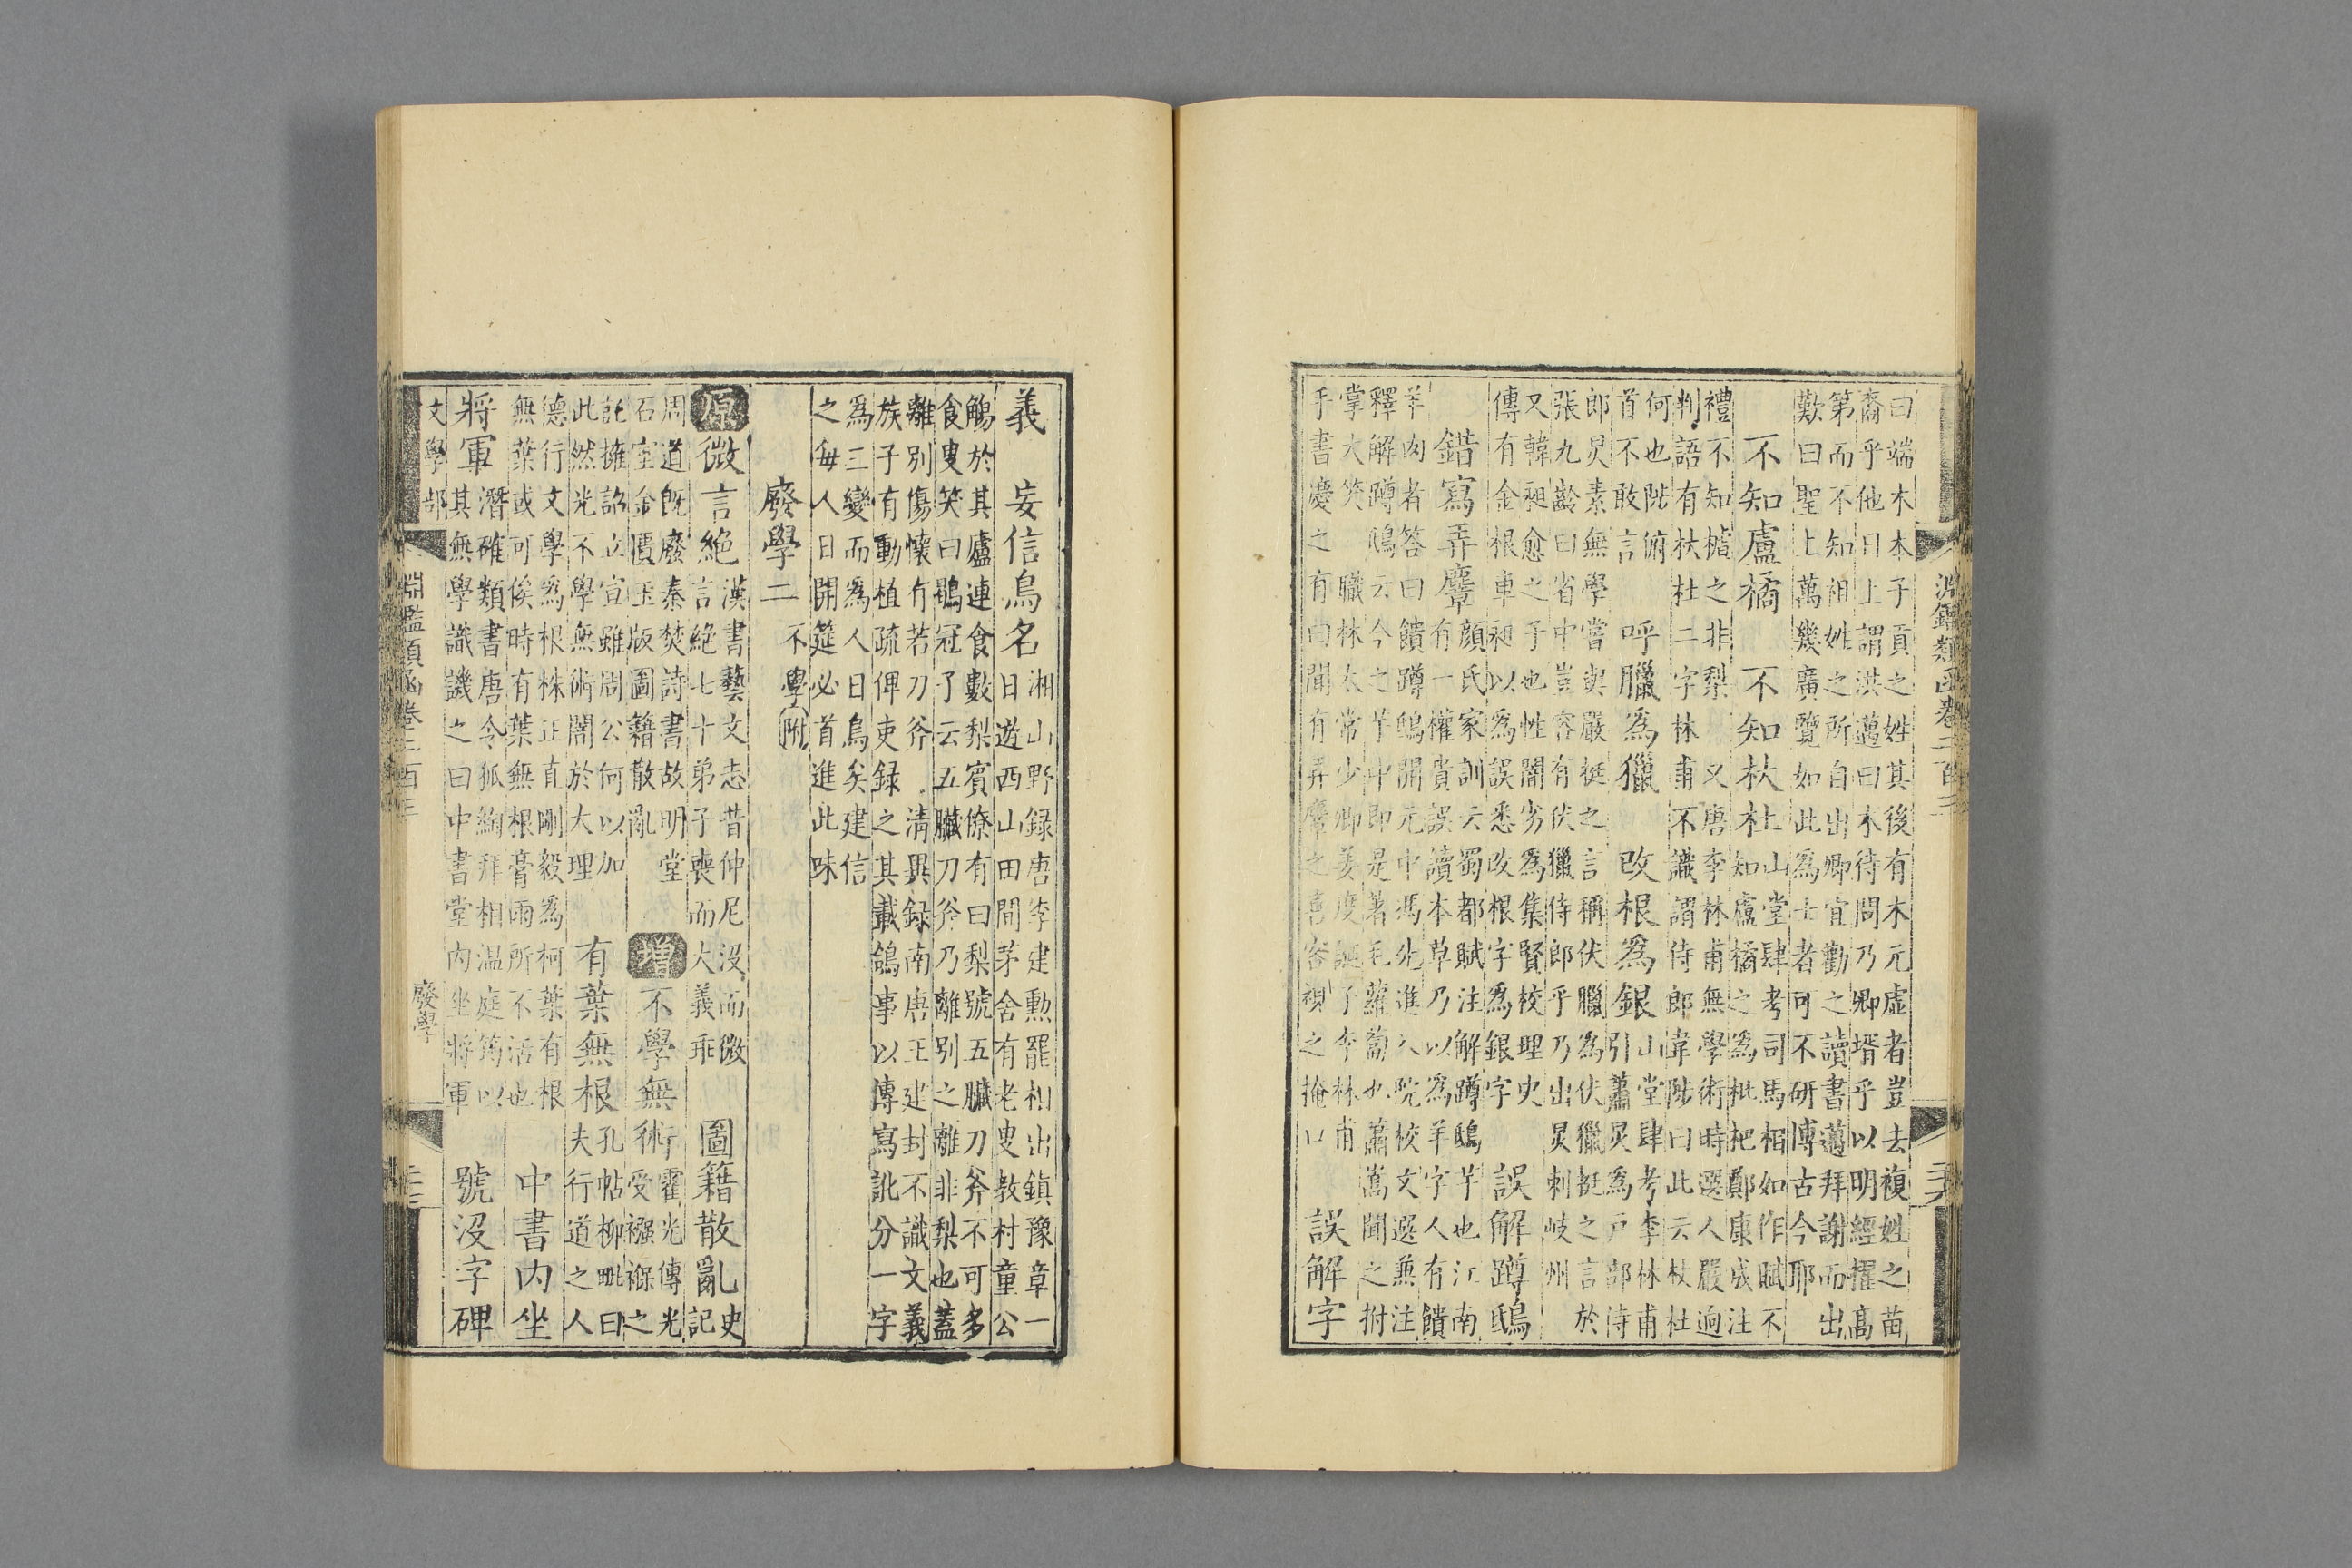 淵鑑類函卷二百三
曰端木本子貢之姓其後有木元虛者豈去複姓之苗
裔乎他日上謂洪邁曰木待問乃卿壻乎以明經擢高
第而不知祖姓之所自出卿宜勸之讀書邁拜謝而出
歎曰聖上萬幾廣覽如此爲士者可不研博古今耶
不知盧橘 不知杕杜 山堂肆考司馬相如作賦不
知盧橘之爲枇杷鄭康成注
禮不知樝之非梨 又唐李林甫無學術時選人嚴逈
判語有杕杜二字林甫不識謂侍郎韋陟曰此云杖杜
何也陟俯
首不敢言
呼臘爲獵 改根爲銀
山堂肆考李林甫
引蕭炅爲戶部侍
郎炅素無學嘗與嚴挺之言稱伏臘爲伏獵挺之言於
張九齡曰省中豈容有伏獵侍郎乎乃出炅刺岐州
又韓昶愈之子也性闇劣爲集賢校理史
傳有金根車昶以爲誤悉改根字爲銀字
誤解蹲鴟
錯寫弄麞
顏氏家訓云蜀都賦注解蹲鴟芋也江南
有一權貴誤讀本草乃以爲羊字人有饋
羊肉者答曰饋蹲鴟開元中馮光進入院校文選兼注
釋解蹲鴟云今之芋中即是著毛蘿蔔也蕭嵩聞之拊
掌大笑 職林太常少卿姜度誕子李林甫
手書慶之有曰聞有弄麞之喜客視之掩口
誤解字
義 妄信鳥名
湘山野録唐李建勳罷相出鎮豫章一
日遊西山田間茅舍有老叟教村童公
觴於其廬連食數梨賓僚有曰梨號五臟刀斧不可多
食叟笑曰鶡冠子云五臟刀斧乃離別之離非梨也蓋
離別傷懷有若刀斧 清異録南唐王建封不識文義
族子有動植疏俾吏録之其載鴿事以傳寫訛分一字
爲三變而爲人日鳥矣建信
之每人日開筵必首進此味
廢學二 不學附
原 微言絶
漢書藝文志昔仲尼没而微
言絶七十弟子喪而大義乖
圖籍散亂
史
記
周道既廢秦焚詩書故明堂
石室金匱玉版圖籍散亂
增 不學無術
霍光傳光
受襁褓之
託擁詔立宣雖周公何以加
此然光不學無術闇於大理
有葉無根
孔帖柳玭曰
夫行道之人
德行文學爲根株正直剛毅爲柯葉有根
無葉或可俟時有葉無根膏雨所不活也
中書内坐
將軍
潛確類書唐令狐綯拜相温庭筠以
其無學識譏之曰中書堂内坐將軍
號没字碑
文學部
淵鑑類函卷二百三
廢學